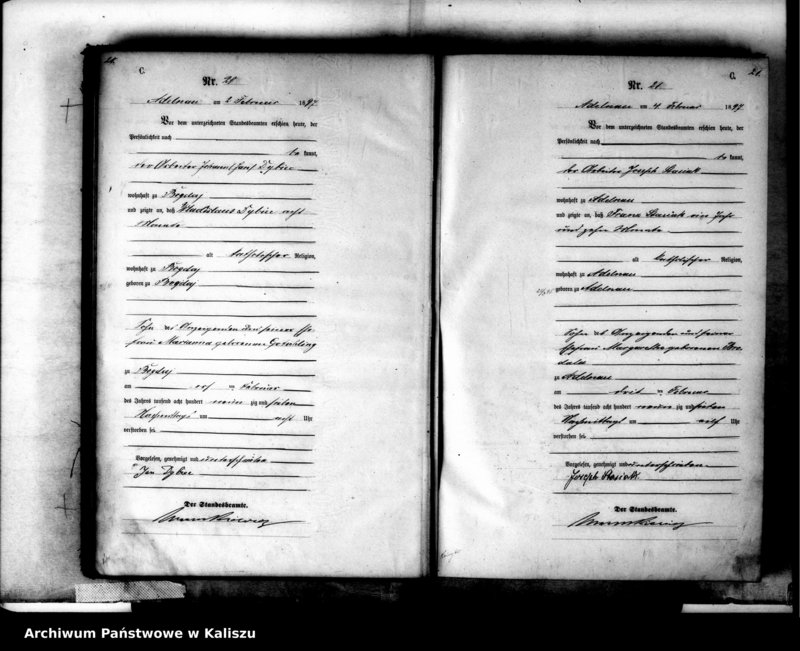 C.
Nr. 20
Adelnau am 2 Februar 1897
Vor dem unterzeichneten Standesbeamten erschien heute, der
Persönlichkeit nach
be kannt,
der Arbeiter Johann (Jan) Dybiec
wohnhaft zu Bogdaj
und zeigte an, daß Wladislaus Dybiec acht
Monate
alt katholischer Religion,
wohnhaft zu Bogdaj
geboren zu Bogdaj
Sohn des Anzeigenden und seiner Ehe
frau Marianna geborenen
zu Bogdaj
am Februar
des Jahres tausend acht hundert neun zig und sieben
Nachmittags um acht Uhr
verstorben sei.
Vorgelesen, genehmigt und unterschrieben
Jan Dybiec
Der Standesbeamte.
21.
C.
Nr. 21
Adelnau am 4 Februar 1897
Vor dem unterzeichneten Standesbeamten erschien heute, der
Persönlichkeit nach
be kannt,
der Arbeiter Joseph Stasiak
wohnhaft zu Adelnau
und zeigte an, daß Franz Stasiak ein Jahr
und zehn Monate
alt katholischer Religion,
wohnhaft zu Adelnau
geboren zu Adelnau
Sohn des Anzeigenden und seiner
Ehefrau Margaretha geborenen
zu Adelnau
am drei ten Februar
des Jahres tausend acht hundert neun zig und sieben
Nachmittags um Uhr
verstorben sei.
Vorgelesen, genehmigt und unterschrieben
Joseph Stasiak
Der Standesbeamte.
Archiwum Państwowe w Kaliszu